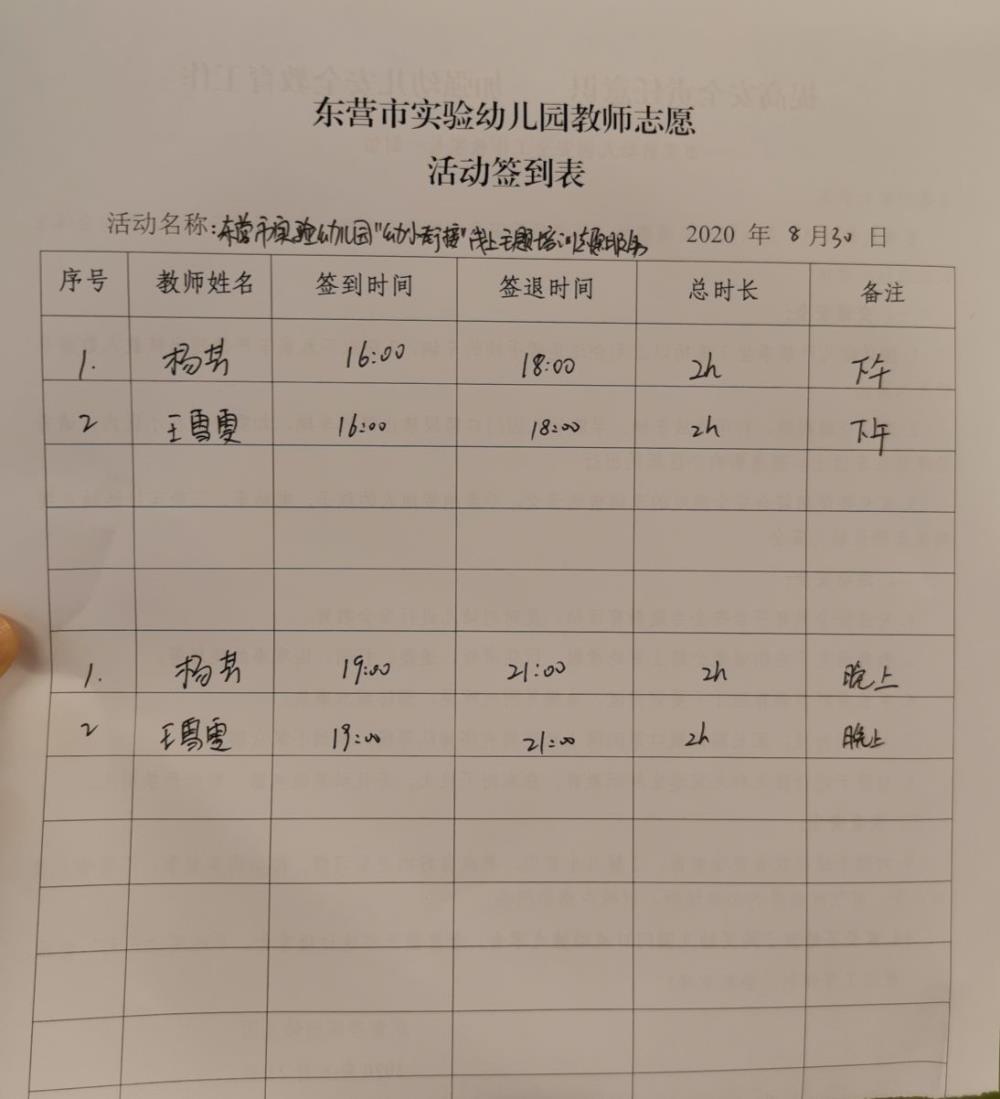 东营市实验幼儿园教师志愿
活动签到表
活动名称:东营市实验幼儿园"幼小衔接"线上主题培训志愿服务 2020 年 8 月 30 日
序号 教师姓名 签到时间 签退时间 总时长 备注
1. 杨芸 16:00 18:00 2h 下午
2 王雪雯 16:00 18:00 2h 下午
1. 杨芸 19:00 21:00 2h 晚上
2 王雪雯 19:00 21:00 2h 晚上